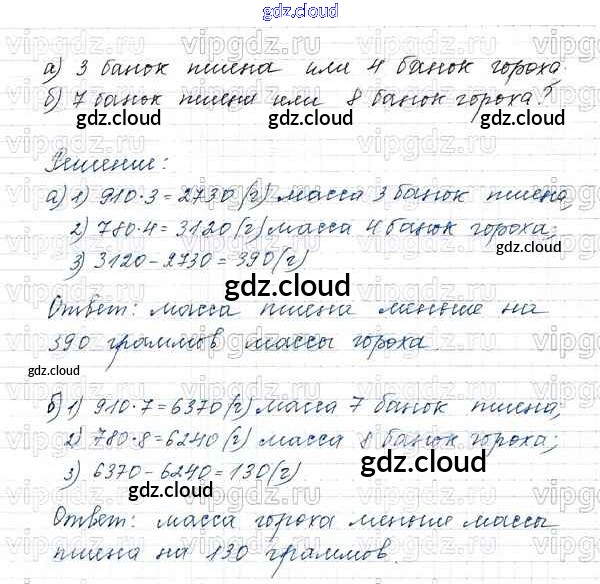 gdz.cloud
а) 3 банок пшена или 4 банок гороха.
б) 7 банок пшена или 8 банок гороха?
gdz.cloud gdz.cloud
Решение:
а) 1) 910·3=2730(г) масса 3 банок пшена,
2) 780·4=3120(г) масса 4 банок гороха;
3) 3120-2730=390(г)
gdz.cloud
gdz.cloud
Ответ: масса пшена меньше на
390 граммов массы гороха
gdz.cloud
б) 1) 910·7=6370(г) масса 7 банок пшена,
2) 780·8=6240(г) масса 8 банок гороха;
3) 6370-6240=130(г)
gdz.cloud
gdz.cloud
Ответ: масса гороха меньше массы
пшена на 130 граммов.